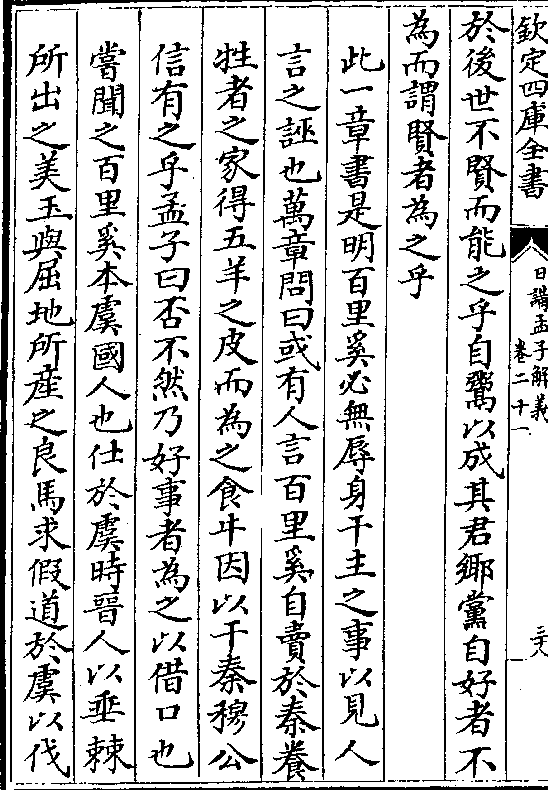 欽定四庫全書
日講孟子解義
卷二十一
三八
於後世不賢而能之乎自鬻以成其君鄉黨自好者不
為而謂賢者為之乎
此一章書是明百里奚必無辱身干主之事以見人
言之誣也萬章問曰或有人言百里奚自賣於秦養
牲者之家得五羊之皮而為之食牛因以干秦穆公
信有之乎孟子曰否不然乃好事者為之以借口也
嘗聞之百里奚本虞國人也仕於虞時晉人以垂棘
所出之美玉與屈地所産之良馬求假道於虞以伐